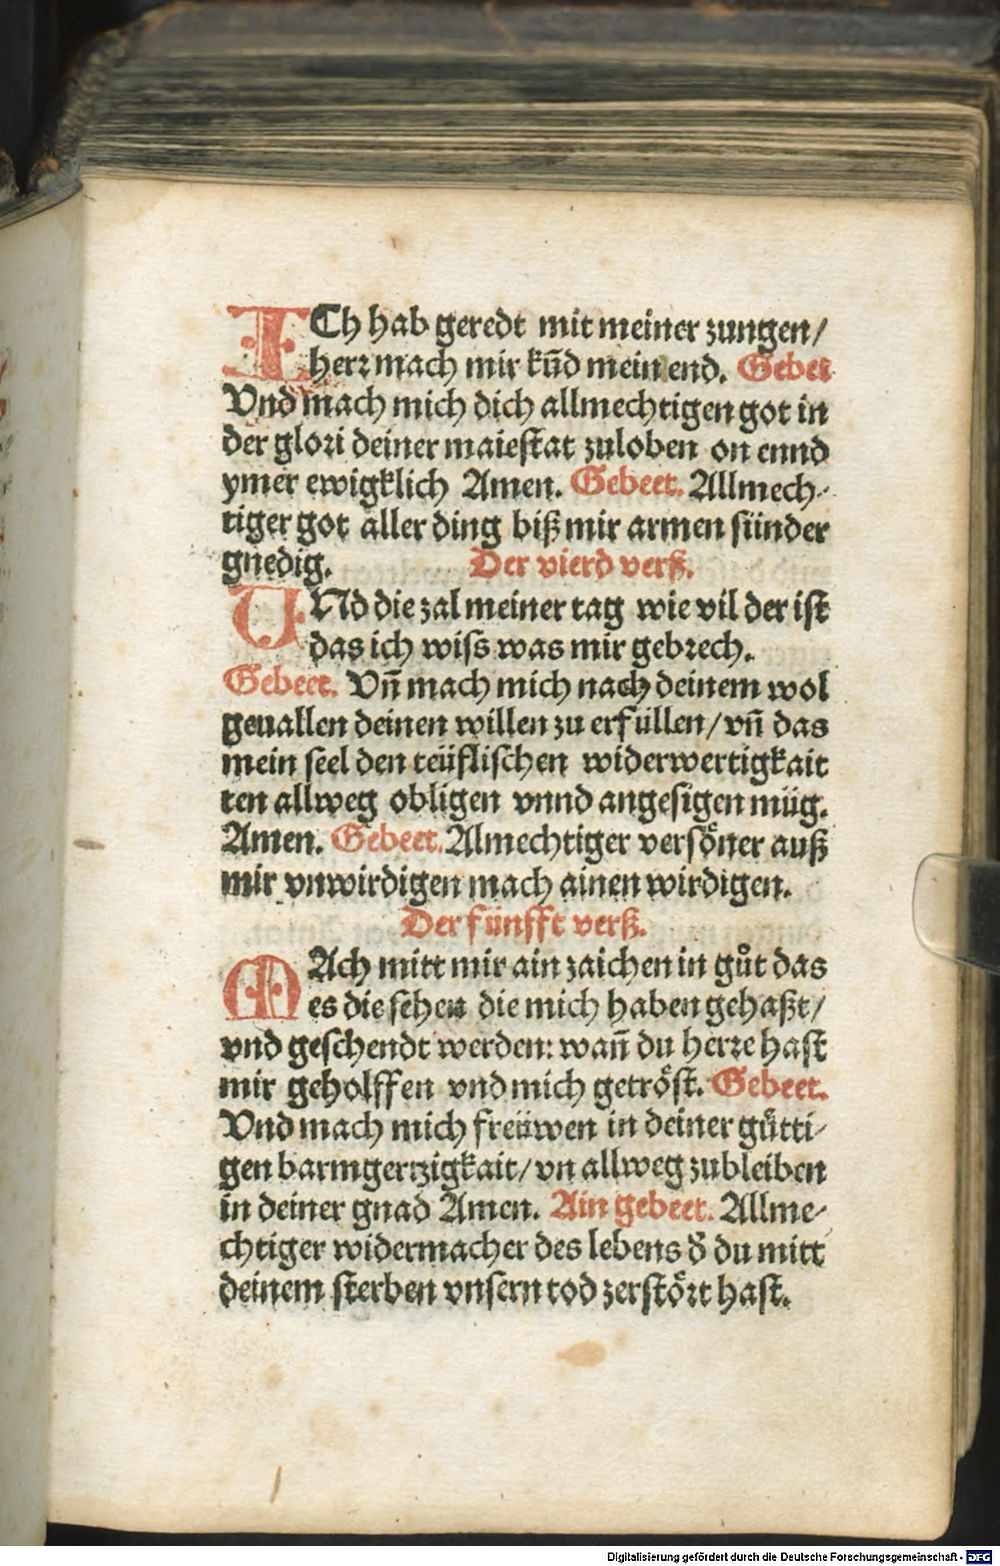 ICh hab geredt mit meiner zungen/
herꝛ mach mir kūd mein end. Gebet
Vnd mach mich dich allmechtigen got in
der gloꝛi deiner maieſtat zuloben on ennd
ymer ewigklich Amen. Gebeet. Allmech⸗
tiger got aller ding biß mir armen ſünder
gnedig. Der vierd verß.
UNd die zal meiner tag wie vil der iſt
das ich wiſs was mir gebꝛech.
Gebeet. Vn̄ mach mich nach deinem wol
geuallen deinen willen zu erfüllen/vn̄ das
mein ſeel den teüfliſchen widerwertigkait
ten allweg obligen vnnd angeſigen müg.
Amen. Gebeet. Almechtiger verſoͤner auß
mir vnwirdigen mach ainen wirdigen.
Der fünfft verß.
MAch mitt mir ain zaichen in guͦt das
es die ſehen die mich haben gehaßt/
vnd geſchendt werden: wan̄ du herꝛe haſt
mir geholffen vnd mich getroͤſt. Gebeet.
Vnd mach mich freüwen in deiner guͤtti⸗
gen barmgertzigkait/vn allweg zubleiben
in deiner gnad Amen. Ain gebeet. Allme⸗
chtiger widermacher des lebens d̓ du mitt
deinem ſterben vnſern tod zerſtoͤꝛt haſt.
Digitalisierung gefördert durch die Deutsche Forschungsgemeinschaft - DFG